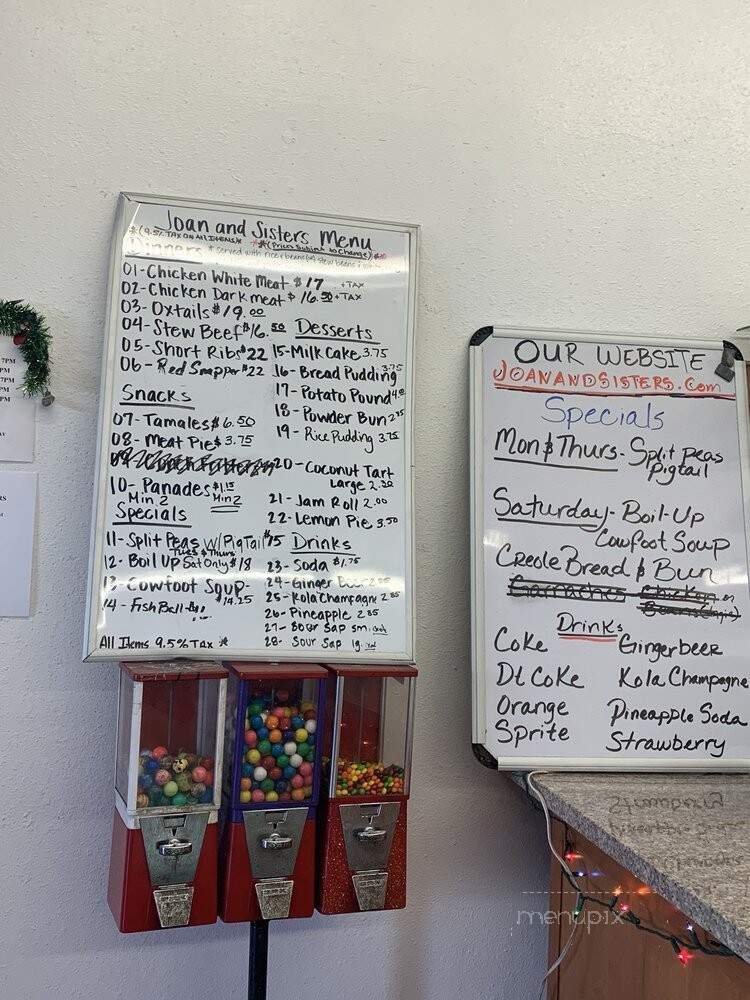 7PM
7PM
7PM
PM
PM
Joan and Sisters Menu
*(9.5% TAX ON All ITEMS)*
*(Prices Subject to Change)
Dinners *served with rice & beans
01-Chicken White Meat $17 +TAX
02-Chicken Dark meat $16.50 +TAX
03-Oxtails $19.00
04-Stew Beef $16.50
05-Short Ribs $22
06-Red Snapper $22
Snacks
07-Tamales $6.50
08-Meat Pie $3.75
09-
10-Panades $1.15
Min. 2 Min 2
Specials
11-Split Peas w/PigTail $15
Tues & Thurs
12-Boil Up Sat Only $18
13-Cowfoot Soup-
$14.25
14-FishBall-
All Items 9.5% Tax *
Desserts
15-Milk Cake 3.75
16-Bread Pudding 3.75
17-Potato Pound
18-Powder Bun 2.75
19-Rice Pudding 3.75
20-Coconut Tart
Large 2.50
21-Jam Roll 2.00
22-Lemon Pie 3.50
Drinks
23-Soda $1.75
24-Ginger Beer 2.85
25-Kola Champagne 2.85
26-Pineapple 2.85
27-Sour Sap sm.
28-Sour Sap lg.
OUR WEBSITE
JOANANDSISTERS.Com
Specials
Mon & Thurs-Split Peas
Pigtail
Saturday-Boil-Up
Cowfoot Soup
Creole Bread & Bun
Garnaches chicken or
Drinks
Coke Gingerbeer
Dt Coke Kola Champagne
Orange Pineapple Soda
Sprite Strawberry
menupix